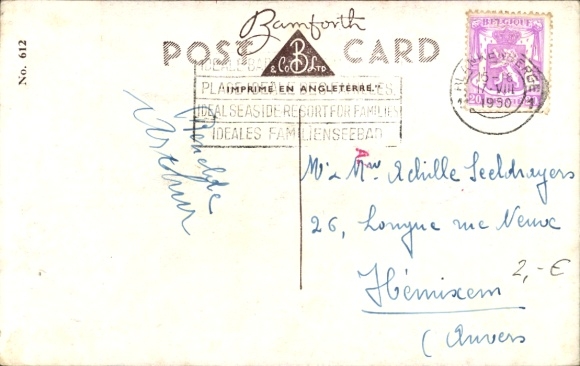 No. 612
Bamforth
POST CARD
B
& Co Ltd
"IMPRIMÉ EN ANGLETERRE."
IDEAL SEASIDE RESORT FOR FAMILIES
IDEALES FAMILIENSEEBAD
BELGIQUE
BLANKENBERGE
VIII
1950
Arthur
Mr & Mme Achille Seeldrayers
26, Longue rue Neuve
Hémixem
(Anvers
2,-€